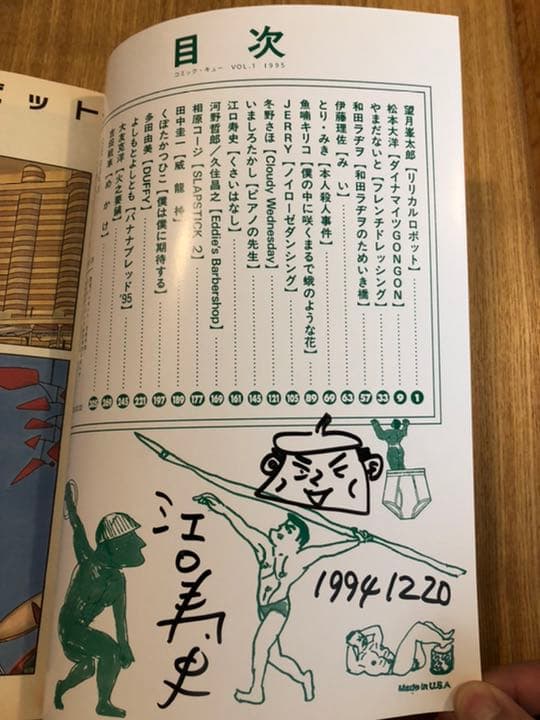 目次
コミック・キュー VOL.1 1995
望月峯太郎【リリカルロボット】 1
松本大洋【ダイナマイツGONGON】 9
やまだないと【フレンチドレッシング】 33
和田ラヂヲ【和田ラヂヲのためいき橋】 57
伊藤理佐【みい】 63
とり・みき【本人殺人事件】 69
魚喃キリコ【僕の中に咲くまるで蛾のような花】 89
JERRY【ノイローゼダンシング】 105
冬野さほ【Cloudy Wednesday】 121
いましろたかし【ピアノの先生】 145
江口寿史【くさいはなし】 161
河野哲郎／久住昌之【Eddie's Barbershop】 169
相原コージ【SLAPSTICK 2】 177
田中圭一【威龍神】 189
くぼたかつひこ【僕は僕に期待する】 197
多田由美【DUFFY】 221
よしもとよしとも【バナナブレッド'95】 245
大友克洋【火之要鎮】 269
吉田戦車【めかけ】
江口寿史
19941220
Made in U.S.A
ット